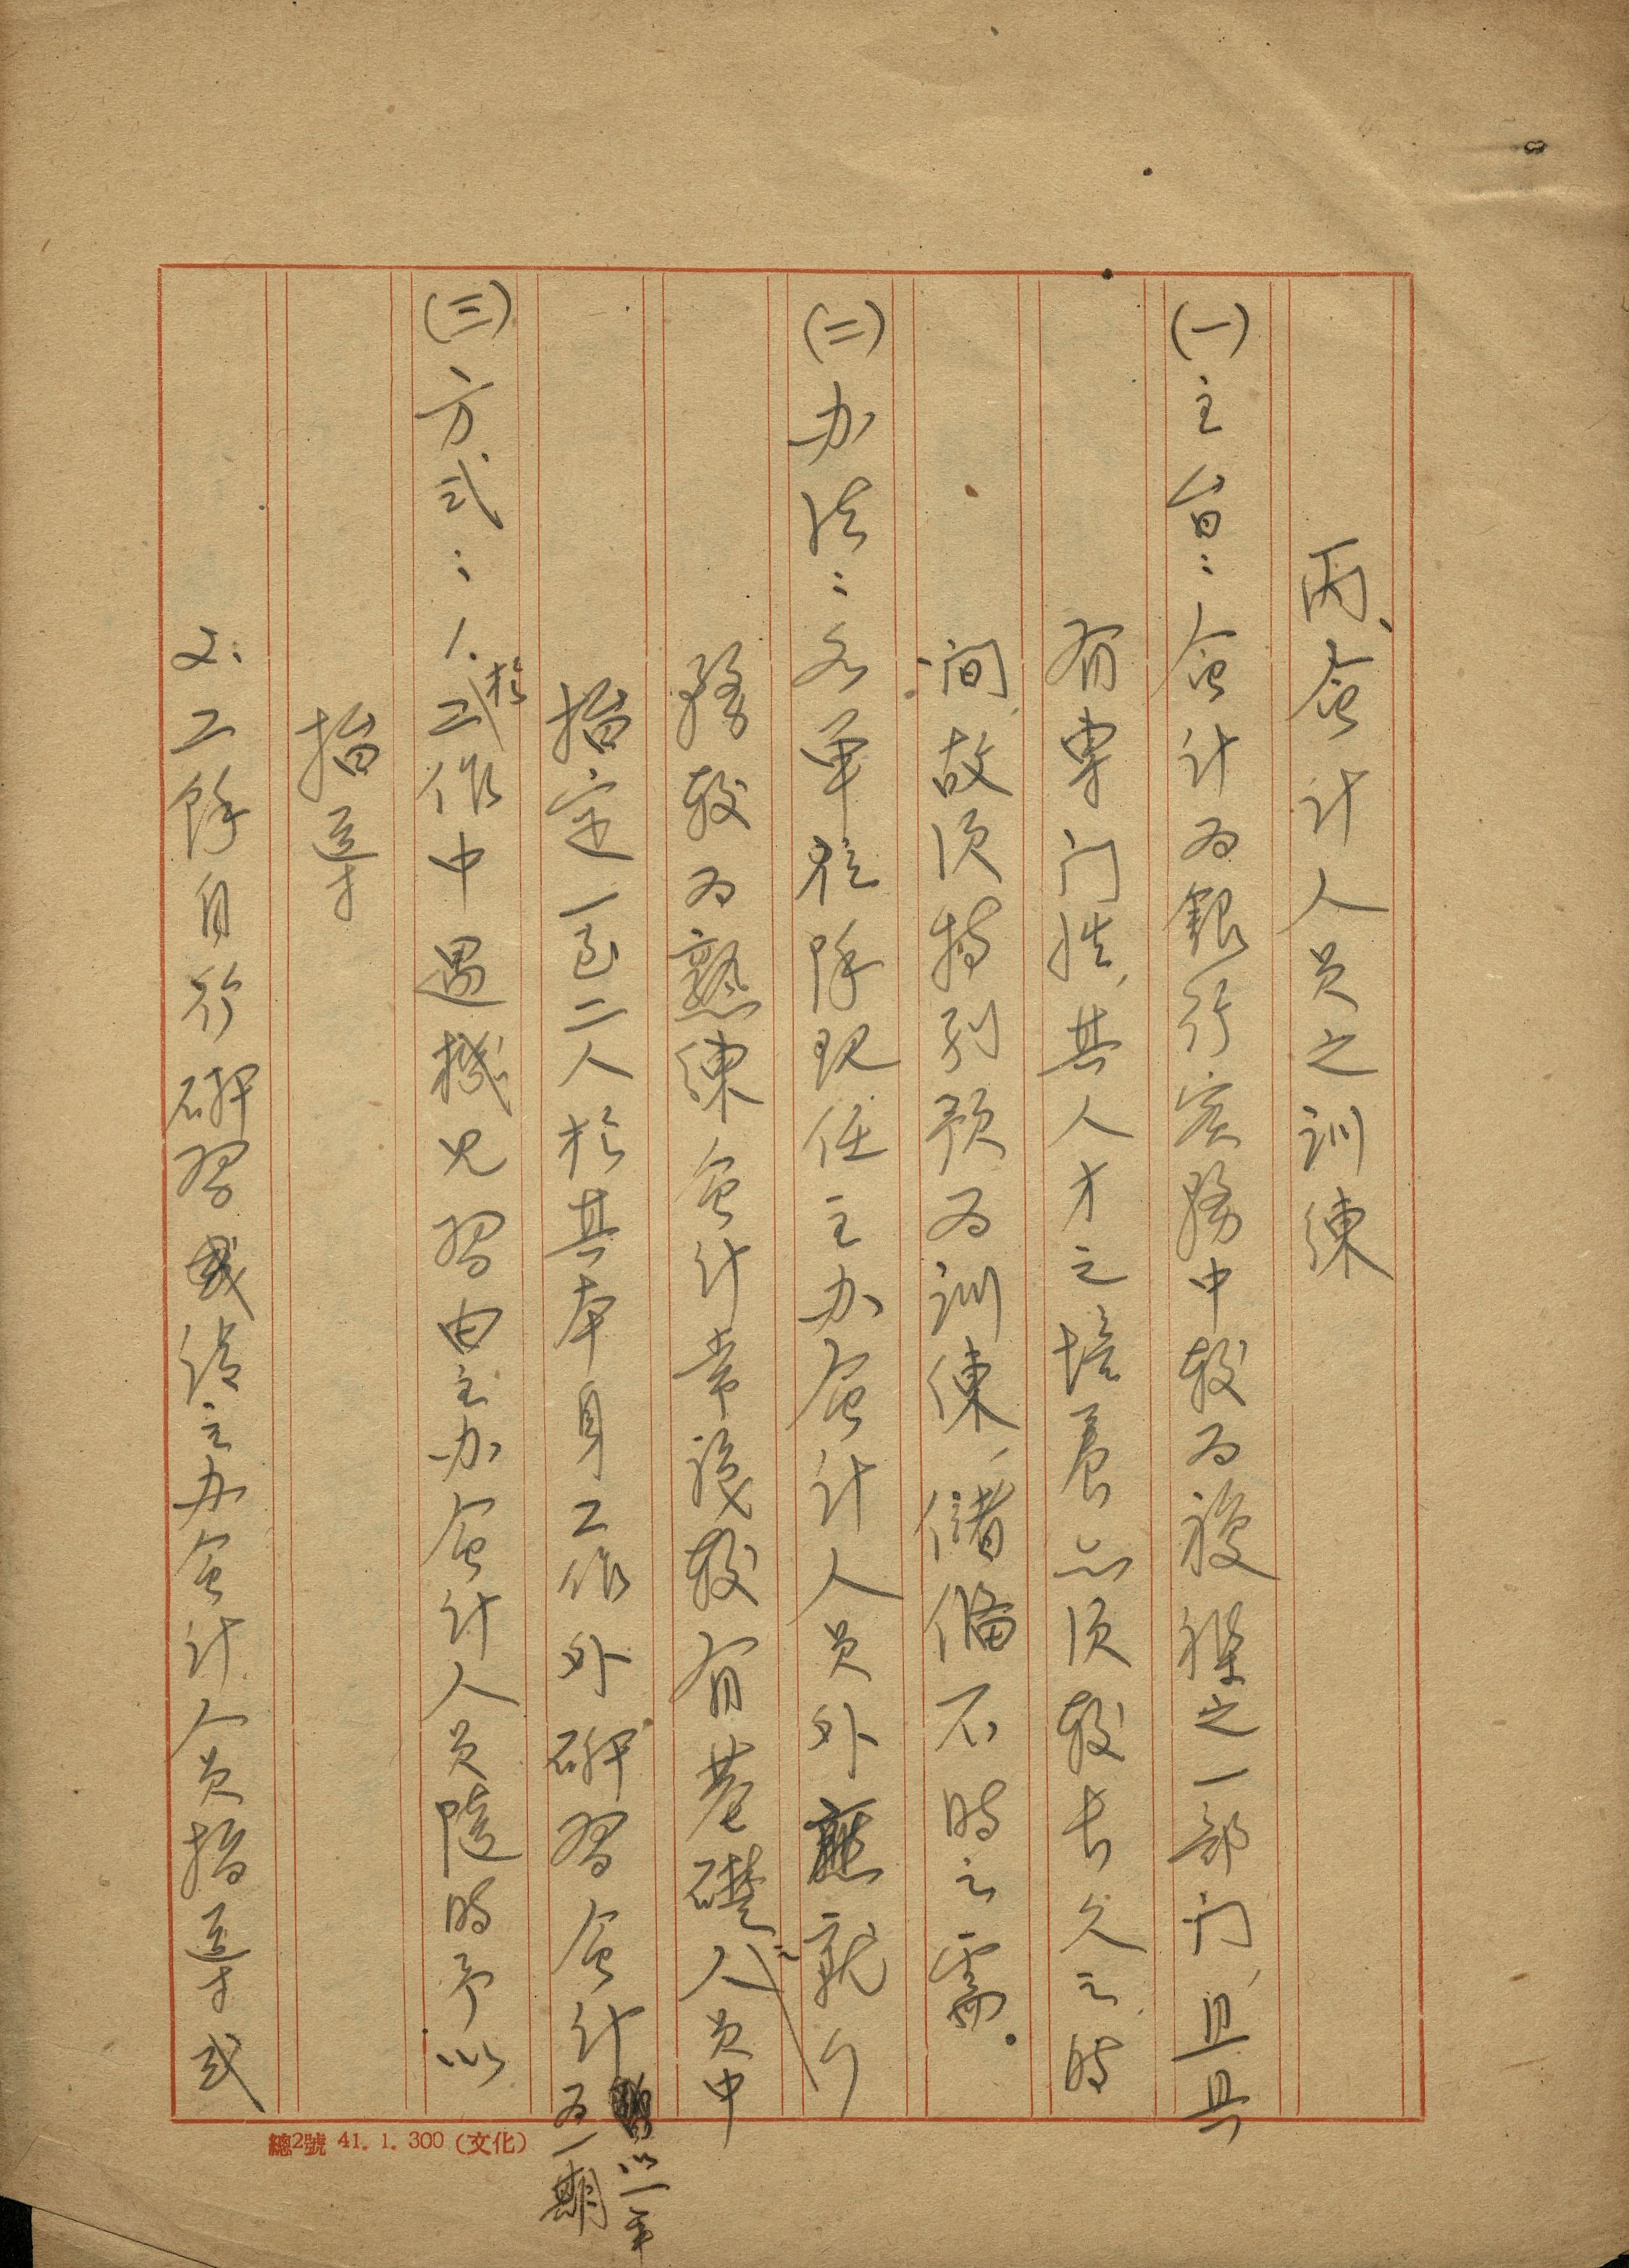 丙、会计人员之训練
(一)主旨：会计为銀行实務中较为複襍之一部门，且具
有専门性，其人才之培养亦须较长久之時
间，故须特别预为训練，儲備不時之需。
(二)办法：各单位除现任主办会计人员外就行
務较为熟練会计常識较有基礎之人员中
指定一至二人於其本身工作外研習会计暫以一年
为一期
(三)方式：1.於工作中遇機见習由主办会计人员随時予以
指導
2.工餘自行研習或请主办会计人员指導或
總2號 41. 1. 300 (文化)